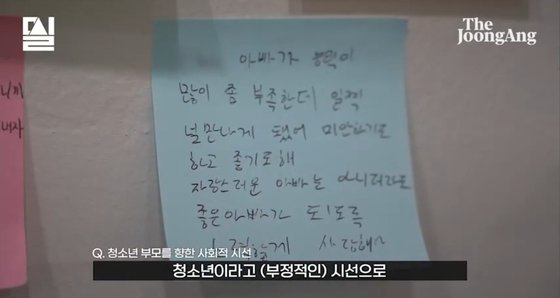 The
JoongAng
니까
내자
아빠가 능력이
많이 좀 부족한데 일찍
널만나게 됐어 미안하기도
하고 좋기도해
자랑스러운 아빠는 아니더라도
좋은아빠가 되도록
사랑해
Q. 청소년 부모를 향한 사회적 시선
청소년이라고 (부정적인) 시선으로